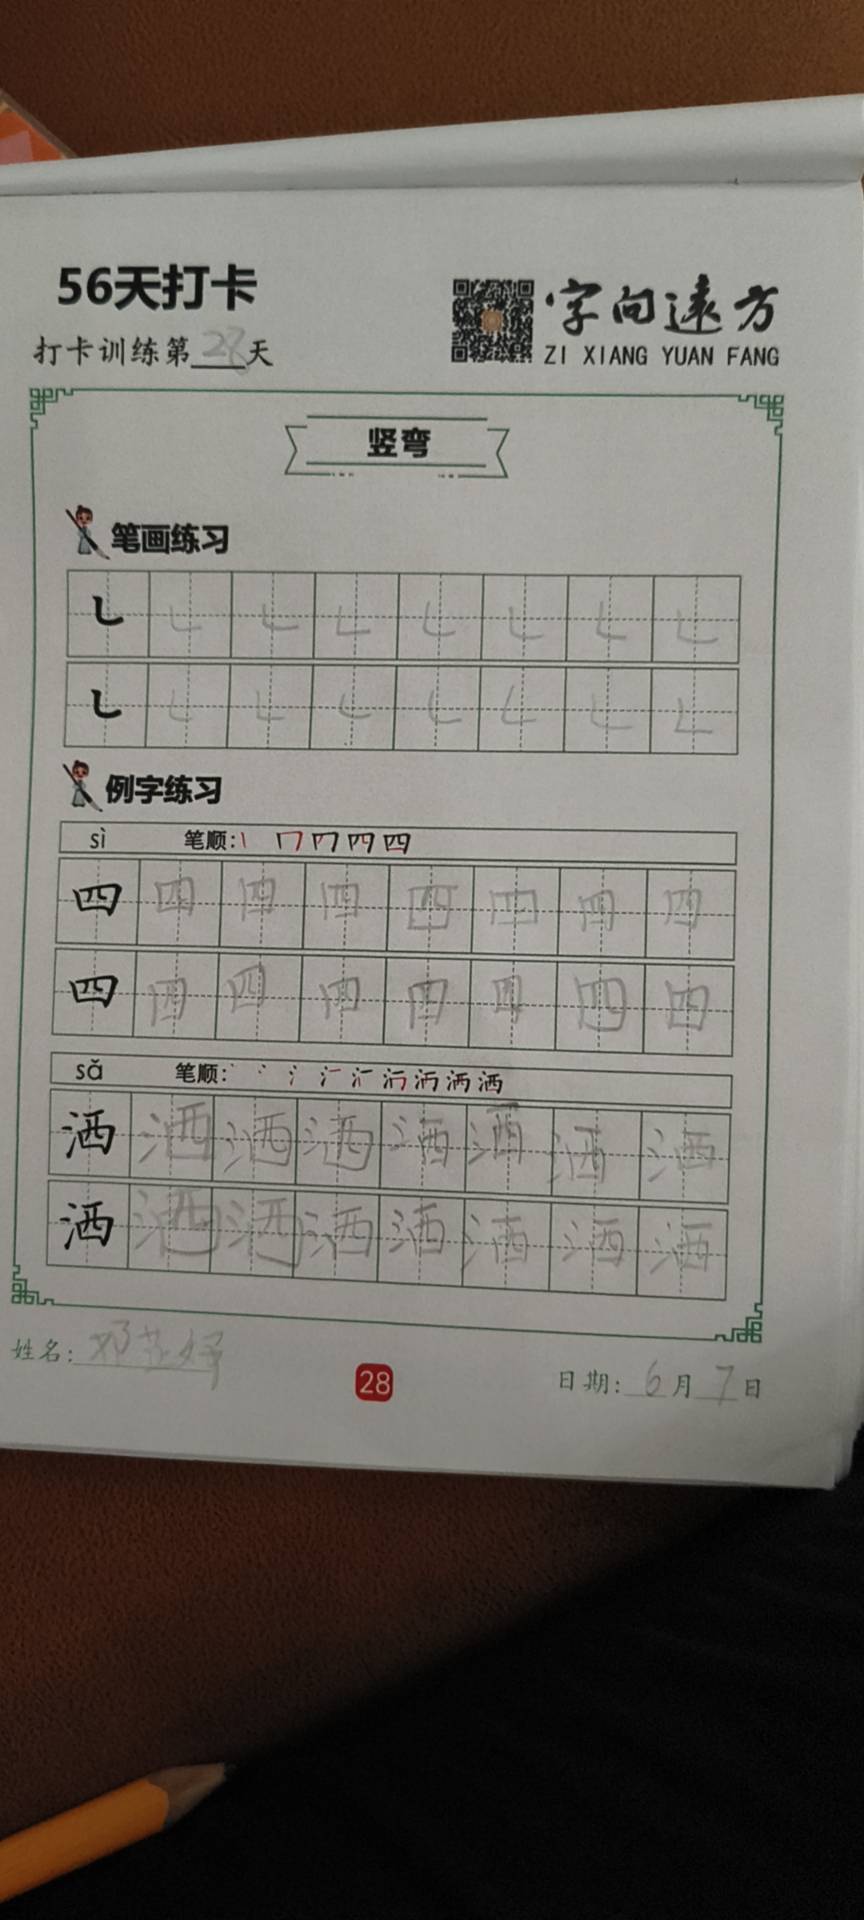 56天打卡
字向遠方
打卡训练第28天
ZI XIANG YUAN FANG
竖弯
笔画练习
例字练习
sì 笔顺:
四 四 四 四 四 四 四 四
四 四 四 四 四 四 四 四
sǎ 笔顺:
洒 洒 洒 洒 洒 洒 洒 洒
洒 洒 洒 洒 洒 洒 洒 洒
姓名:
28
日期: 6月7日